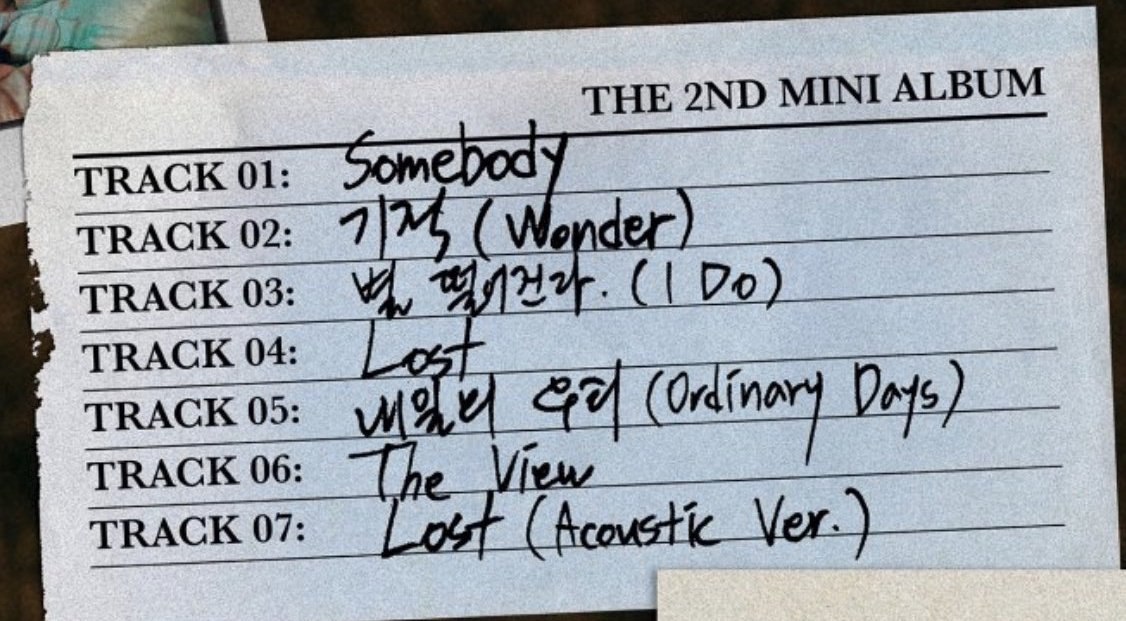 THE 2ND MINI ALBUM
TRACK 01: Somebody
TRACK 02: 기적 (Wonder)
TRACK 03: 별 떨어진다. (I Do)
TRACK 04: Lost
TRACK 05: 내일의 우리 (Ordinary Days)
TRACK 06: The View
TRACK 07: Lost (Acoustic Ver.)